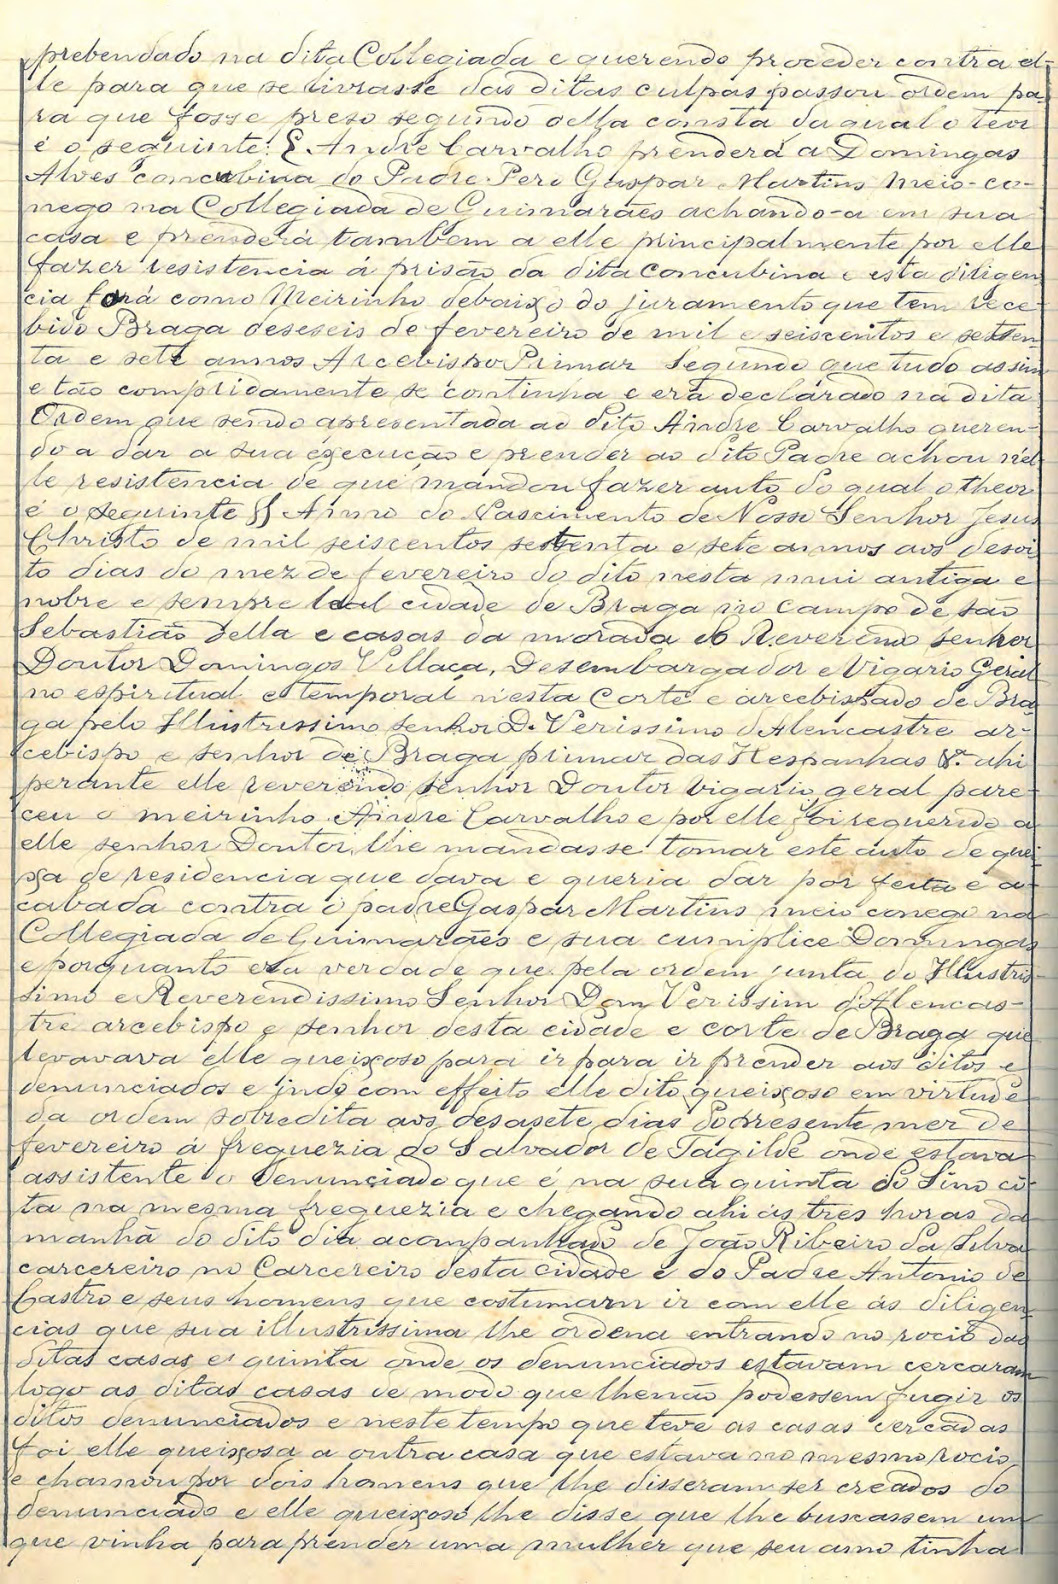 prebendado na dita Collegiada e querendo proceder contra el-
le para que se livrasse das ditas culpas passou ordem pa-
ra que fosse preso segundo della consta da qual o teor
é o seguinte: § André Carvalho prenderá a Domingas
Alves concubina do Padre Pero Gaspar Martins Meio-co-
nego na Collegiada de Guimarães achando-a em sua
casa e prenderá tambem a elle principalmente por elle
fazer resistencia á prisão da dita concubina e esta diligen
cia fará como Meirinho debaixo do juramento que tem rece-
bido Braga deseseis de fevereiro de mil e seiscentos e seten
ta e sete annos Arcebispo Primaz Segundo que tudo assim
e tão compridamente se continha e era declarado na dita
Ordem que sendo apresentada ao dito Andre Carvalho queren-
do a dar a sua execução e prender ao dito Padre achou nel
le resistencia de que mandou fazer auto do qual o theor
é o seguinte §§ Anno do Nascimento de Nosso Senhor Jesus
Christo de mil seiscentos setenta e sete annos aos desoi
to dias do mez de fevereiro do dito nesta mui antiga e
nobre e sempre leal cidade de Braga no campo de são
Sebastião della e casas da morada do Reverendo senhor
Doutor Domingos Villaça, Desembargador e Vigario Geral
no espiritual e temporal n'esta Corte e arcebispado de Bra
ga pelo Illustrissimo senhor D. Verissimo d'Alencastre ar-
cebispo e senhor de Braga primaz das Hespanhas &ª ahi
perante elle reverendo senhor Doutor vigario geral pare-
ceu o meirinho Andre Carvalho e por elle foi requerido a
elle senhor Doutor lhe mandasse tomar este auto de quei
xa de residencia que dava e queria dar por feita e a-
cabada contra o padre Gaspar Martins meio conego na
Collegiada de Guimarães e sua cumplice Domingas
e porquanto era verdade que pela ordem junta do Illustris
simo e Reverendissimo Senhor Dom Verissim d'Alencas-
tre arcebispo e senhor desta cidade e corte de Braga que
levavava elle queixoso para ir para ir prender aos ditos e
denunciados e indo com effeito elle dito queixoso em virtude
da ordem sobredita aos desasete dias do presente mez de
fevereiro á freguezia do Salvador de Tágilde onde estava
assistente o denunciado que é na sua quinta do Sino ci-
ta na mesma freguezia e chegando ahi ás tres horas da
manhã do dito dia acompanhado de João Ribeiro da Silva
carcereiro no Carcereiro desta cidade e do Padre Antonio de
Castro e seus homens que costumam ir com elle ás diligen
cias que sua illustrissima lhe ordena entrando no rocio das
ditas casas e quinta onde os denunciados estavam cercaram
logo as ditas casas de modo que lhe não podessem fugir os
ditos denunciados e neste tempo que teve as casas cercadas
foi elle queixosa a outra casa que estava no mesmo rocio
e chamou por dois homens que lhe disseram ser creados do
denunciado e elle queixoso lhe disse que lhe buscassem um
que vinha para prender uma mulher que seu amo tinha